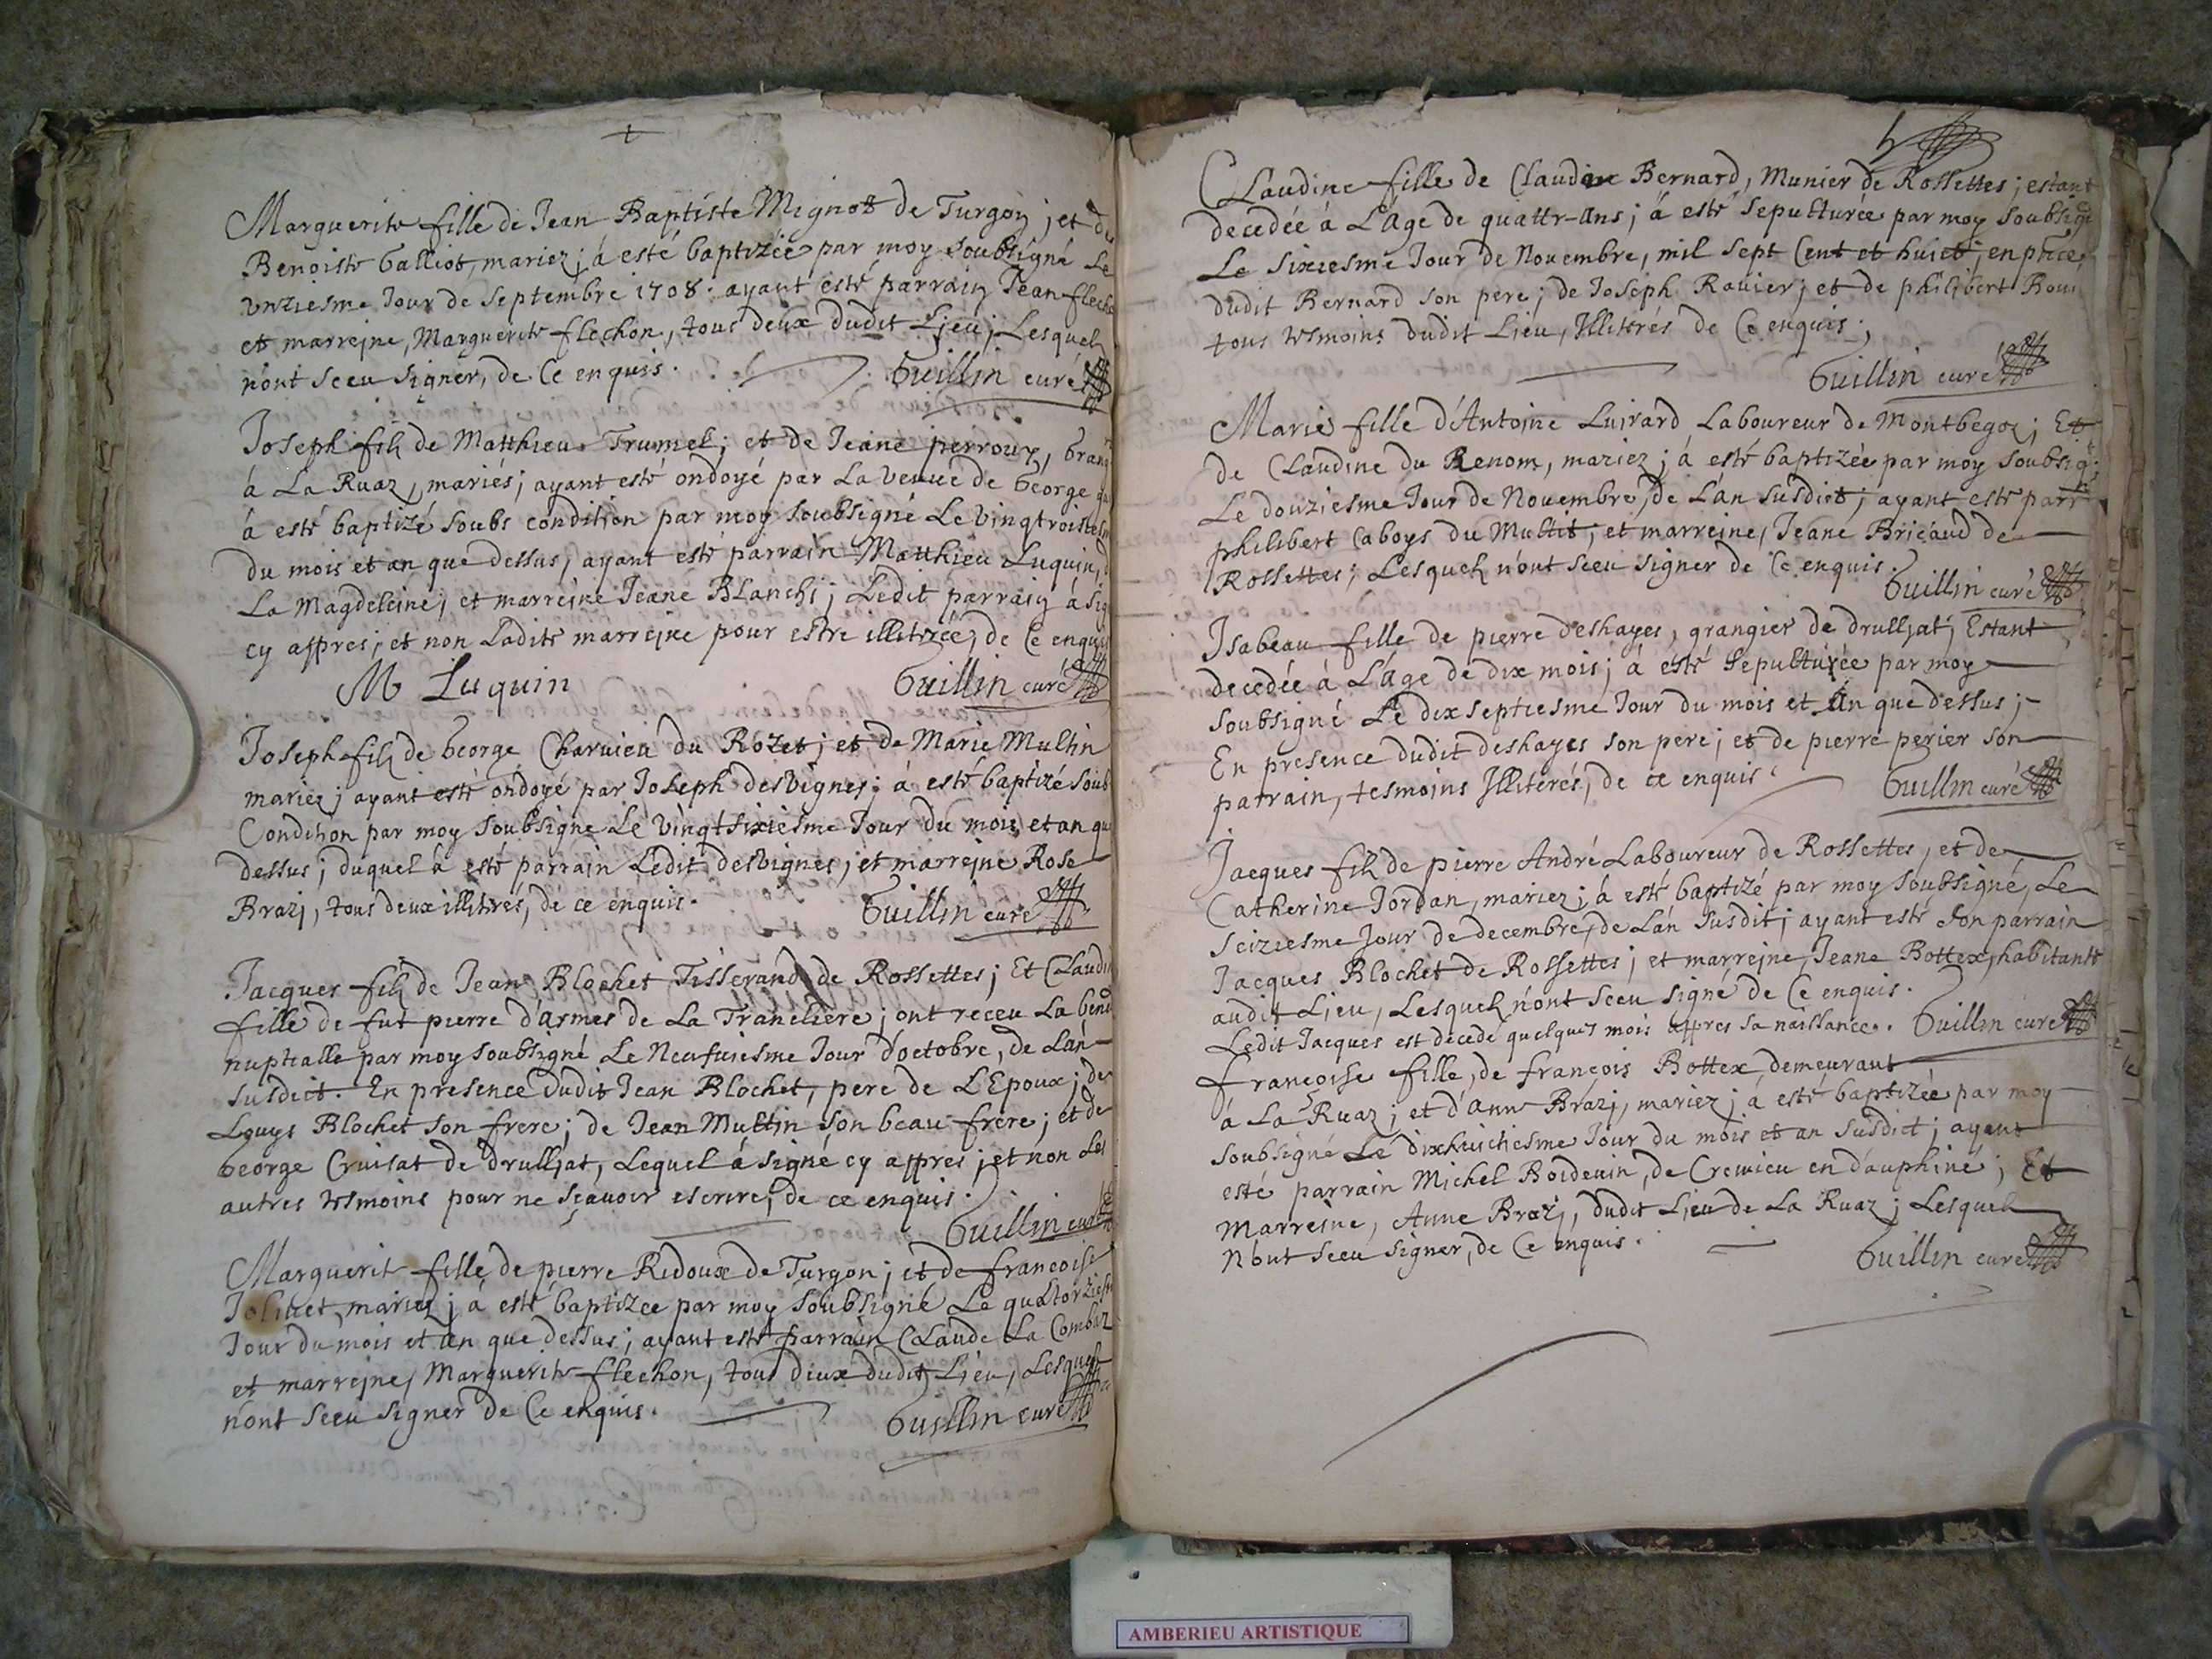 Marguerite fille de Jean Baptiste Mignot de Turgon ; et de
Benoiste Galliot, mariez ; á esté baptizée par moy soubsigné Le
unziesme Jour de septembre 1708. ayant esté parrain Jean flecho
et marreine, Marguerite flechon, tous deux dudit Lieu ; Lesquels
n'ont sceu signer, de Ce enquis.
Guillin curé
Joseph fils de Matthieu Trumel ; et de Jeane perroux, Grang
á La Ruaz, mariés ; ayant esté ondoyé par La veuue de George
á esté baptizé soubs condition par moy soubsigné Le vingtroisiesm
du mois et an que dessus, ayant esté parrain Matthieu Luquin, d
La Magdeleine ; et marreine Jeane Blanchi ; Ledit parrain á sig
cy appres ; et non Ladite marreine pour estre illitrée, de Ce enquis
M Luquin
Guillin curé
Joseph fils de George Charuieu du Rozet ; et de Marie Multin
mariez ; ayant esté ondoyé par Joseph desvignes ; á esté baptizé soub
Condition par moy soubsigne Le vingtsixiesme Jour du mois et an que
dessus ; duquel á esté parrain Ledit desvignes, et marreine Rose
Brazj, tous deux illitrés, de ce enquis.
Guillin curé
Jacques fils de Jean Blochet Tisserand de Rossettes ; Et Claudi
fille de fut pierre d'armes de La Tranclière ; ont receu La bened
nuptialle par moy soubsigné Le Neufuiesme Jour d'octobre, de L'an
susdict. En presence dudit Jean Blochet, pere de L'Epoux ; de
Louys Blochet son frere ; de Jean Multin son beau frere ; et de
George Cruisat de drulljat, Lequel á signé cy appres ; et non Les
autres tesmoins pour ne sçauoir escrire, de ce enquis.
Guillin curé
Marguerite fille de pierre Ridoux de Turgon ; et de francoise
Joliuet mariez ; á esté baptizee par moy soubsigné Le quattorziesm
Jour du mois et an que dessus ; ayant esté parrain Claude La Combaz
et marreine, Marguerite flechon, tous deux dudit Lieu, Lesquels
n'ont sceu signer de Ce enquis.
Guillin curé
Claudine fille de Claude Bernard, Munier de Rossettes ; estant
decedée á L'âge de quattr-ans ; á esté sepulturée par moy soubsigé
Le sixiesme Jour de Nouembre, mil sept Cent et huict ; en prece
dudit Bernard son pere ; de Joseph Rauier ; et de philibert Roui
tous tesmoins dudit Lieu, Illitrés de Ce enquis ;
Guillin curé
Marie fille d'Antoine Luirard Laboureur de Montbegoz ; Et
de Claudine du Renom, mariez ; á esté baptizée par moy soubsig
Le douziesme Jour de Nouembre, de L'an susdict ; ayant esté parr
philibert Caboys du Multit ; et marreine, Jeane Bricaud de
Rossettes ; Lesquels n'ont sceu signer de Ce enquis.
Guillin curé
Isabeau fille de pierre deshayes, grangier de drulljat ; Estant
decedée á L'âge de dix mois ; á esté sepulturée par moy
soubsigné Le dixseptiesme Jour du mois et An que dessus ;
En presence dudit deshayes son pere ; et de pierre perier son
parrain, tesmoins Illiterés, de ce enquis.
Guillin curé
Jacques fils de pierre André Laboureur de Rossettes, et de
Catherine Jordan, mariez ; á esté baptizé par moy soubsigné, Le
seiziesme Jour de decembre, de L'an susdit ; ayant esté son parrain
Jacques Blochet de Rossettes ; et marreine Jeane Bottex, habitante
audit Lieu, Lesquels n'ont sceu signé de Ce enquis.
Ledit Jacques est décédé quelques mois appres sa naissance. Guillin curé
françoise fille, de françois Bottex demeurant
á La Ruaz ; et d'anne Brazj, mariez ; á esté baptizée par moy
soubsigné Le dixhuictiesme Jour du mois et an susdict ; ayant
esté parrain Michel Boideuin, de Cremieu en dauphiné ; Et
Marreine, Anne Brazj, dudit Lieu de La Ruaz ; Lesquels
N'ont sceu signer, de Ce enquis.
Guillin curé
AMBERIEU ARTISTIQUE